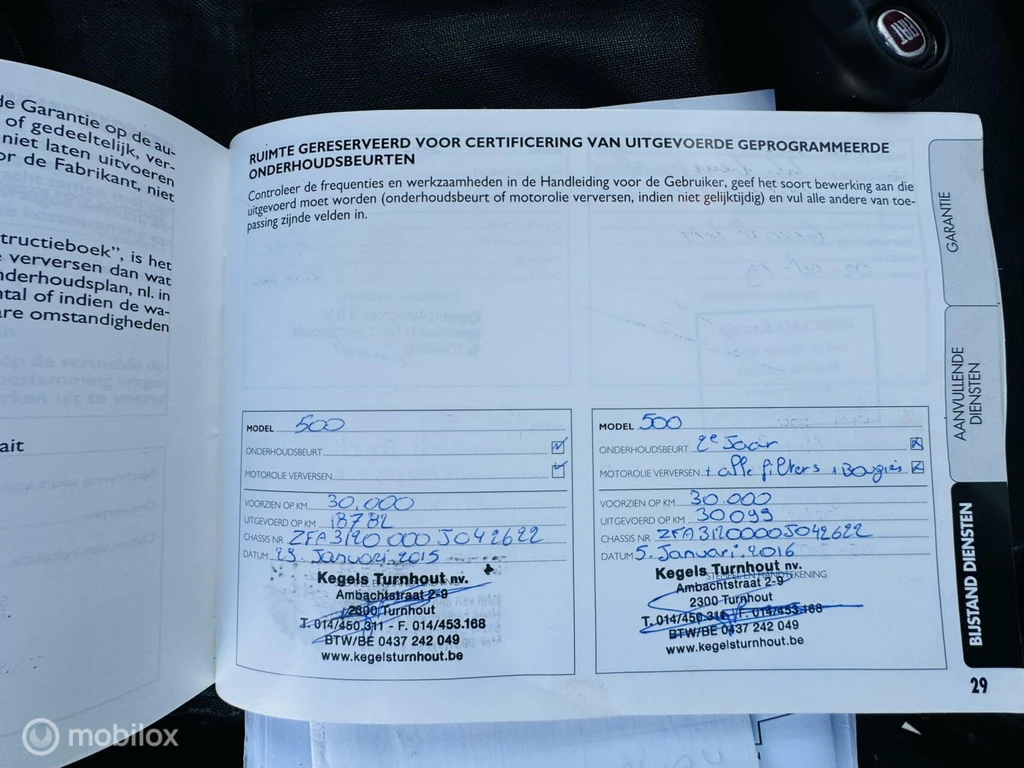 FIAT
de Garantie op de au-
of gedeeltelijk, ver-
niet laten uitvoeren
or de Fabrikant, niet
tructieboek”, is het
verversen dan wat
nderhoudsplan, nl. in
ntal of indien de wa-
are omstandigheden
ait
RUIMTE GERESERVEERD VOOR CERTIFICERING VAN UITGEVOERDE GEPROGRAMMEERDE
ONDERHOUDSBEURTEN
Controleer de frequenties en werkzaamheden in de Handleiding voor de Gebruiker, geef het soort bewerking aan die
uitgevoerd moet worden (onderhoudsbeurt of motorolie verversen, indien niet gelijktijdig) en vul alle andere van toe-
passing zijnde velden in.
MODEL 500
ONDERHOUDSBEURT
MOTOROLIE VERVERSEN
VOORZIEN OP KM 30.000
UITGEVOERD OP KM 18782
CHASSIS NR ZFA3120000J042622
DATUM 23. Januari 2015
Kegels Turnhout nv.
Ambachtstraat 2-9
2300 Turnhout
T. 014/450.311 - F. 014/453.168
BTW/BE 0437 242 049
www.kegelsturnhout.be
MODEL 500
ONDERHOUDSBEURT 2e Jaar
MOTOROLIE VERVERSEN + alle filters + Bougies
VOORZIEN OP KM 30.000
UITGEVOERD OP KM 30099
CHASSIS NR ZFA3120000J042622
DATUM 5. Januari 2016
STEMPEL EN HANDTEKENING
Kegels Turnhout nv.
Ambachtstraat 2-9
2300 Turnhout
T. 014/450.311 - F. 014/453.168
BTW/BE 0437 242 049
www.kegelsturnhout.be
GARANTIE
AANVULLENDE
DIENSTEN
BIJSTAND DIENSTEN
29
mobilox